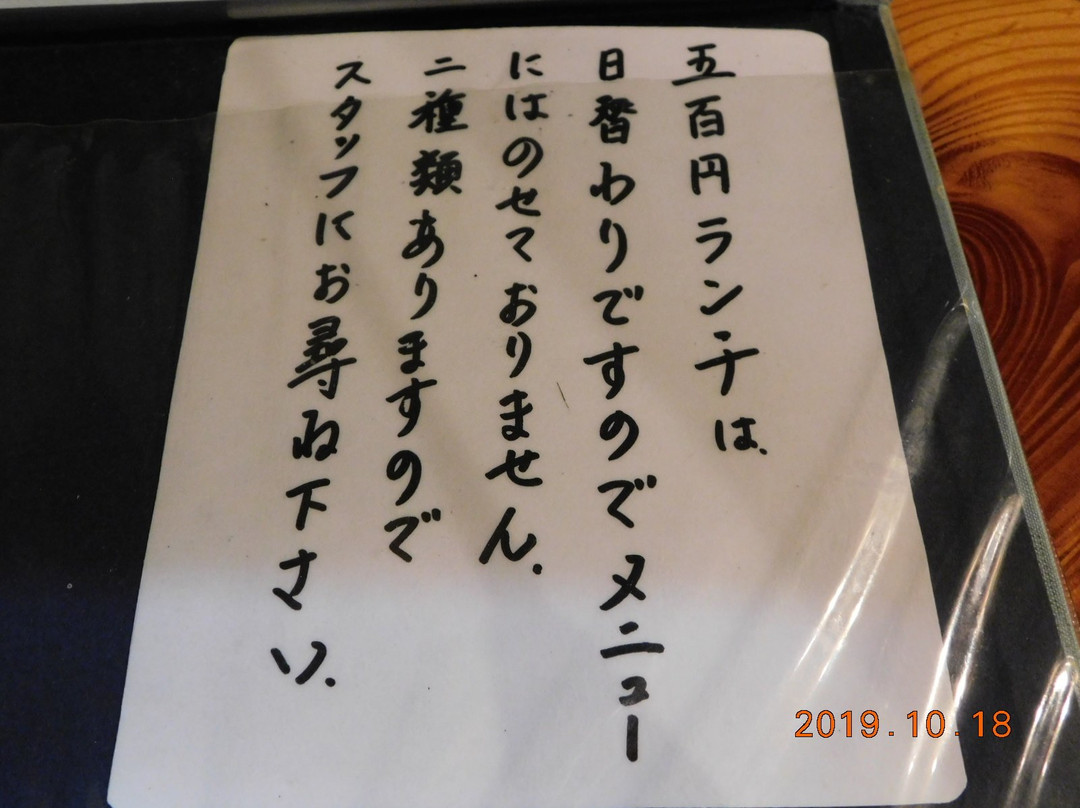 五百円ランチは、
日替わりですのでメニュー
にはのせておりません。
二種類ありますので
スタッフにお尋ね下さい。
2019.10.18